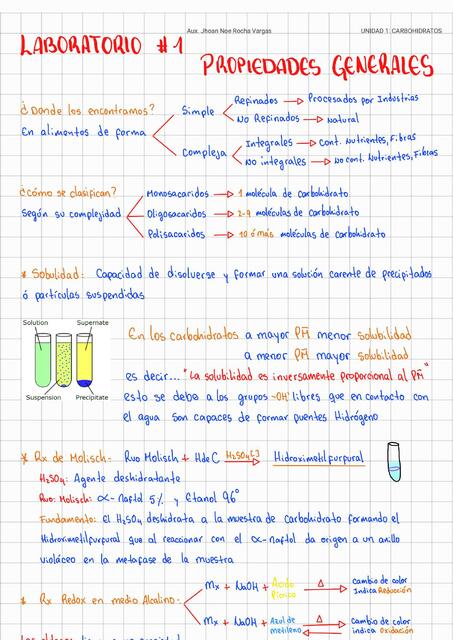 Aux. Jhoan Noe Rocha Vargas
UNIDAD 1: CARBOHIDRATOS
LABORATORIO #1
PROPIEDADES GENERALES
¿Donde los encontramos?
En alimentos de forma
Simple
Refinados → Procesados por Industrias
No Refinados → Natural
Compleja
Integrales → Cont. Nutrientes, Fibras
No integrales → No cont. Nutrientes, Fibras
¿Cómo se clasifican?
Según su complejidad
Monosacaridos → 1 molécula de carbohidrato
Oligosacaridos → 2-9 moléculas de carbohidrato
Polisacaridos → 10 ó más moléculas de carbohidrato
* Solubilidad: Capacidad de disolverse y formar una solución carente de precipitados
ó partículas suspendidas
Solution
Supernate
Suspension
Precipitate
En los carbohidratos a mayor PM menor solubilidad
a menor PM mayor solubilidad
es decir... "La solubilidad es inversamente proporcional al PM"
esto se debe a los grupos -OH libres que en contacto con
el agua son capaces de formar puentes Hidrógeno
* Rx de Molisch- Rvo Molisch + H de C H₂SO₄[] → Hidroximetilfurfural
H₂SO₄: Agente deshidratante
Rvo: Molisch: α-naftol 5% y Etanol 96°
Fundamento: El H₂SO₄ deshidrata a la muestra de carbohidrato formando el
Hidroximetilfurfural que al reaccionar con el α-naftol da origen a un anillo
violáceo en la metafase de la muestra
* Rx Redox en medio Alcalino-
Mx + NaOH + Ácido Pícrico Δ → cambio de color
Indica Reducción
Mx + NaOH + Azul de metileno Δ cambio de color
indica Oxidación